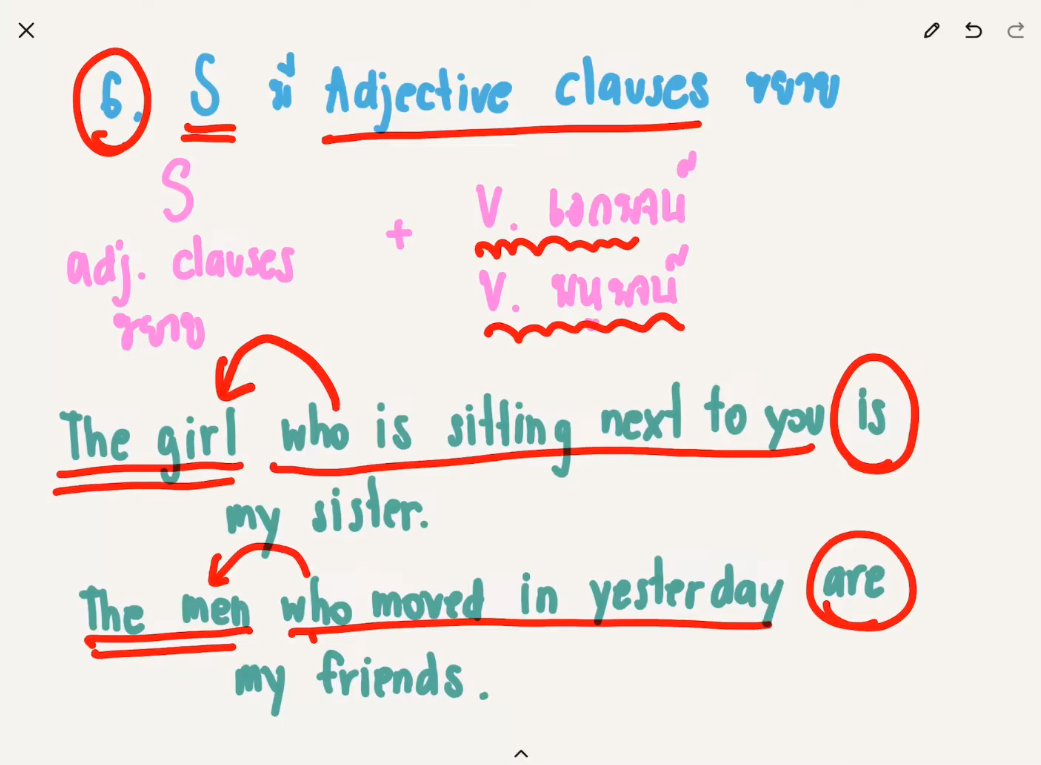 6. S มี Adjective clauses ขยาย
S
adj. clauses
ขยาย
+
V. เอกพจน์
V. พหูพจน์
The girl who is sitting next to you is
my sister.
The men who moved in yesterday are
my friends.